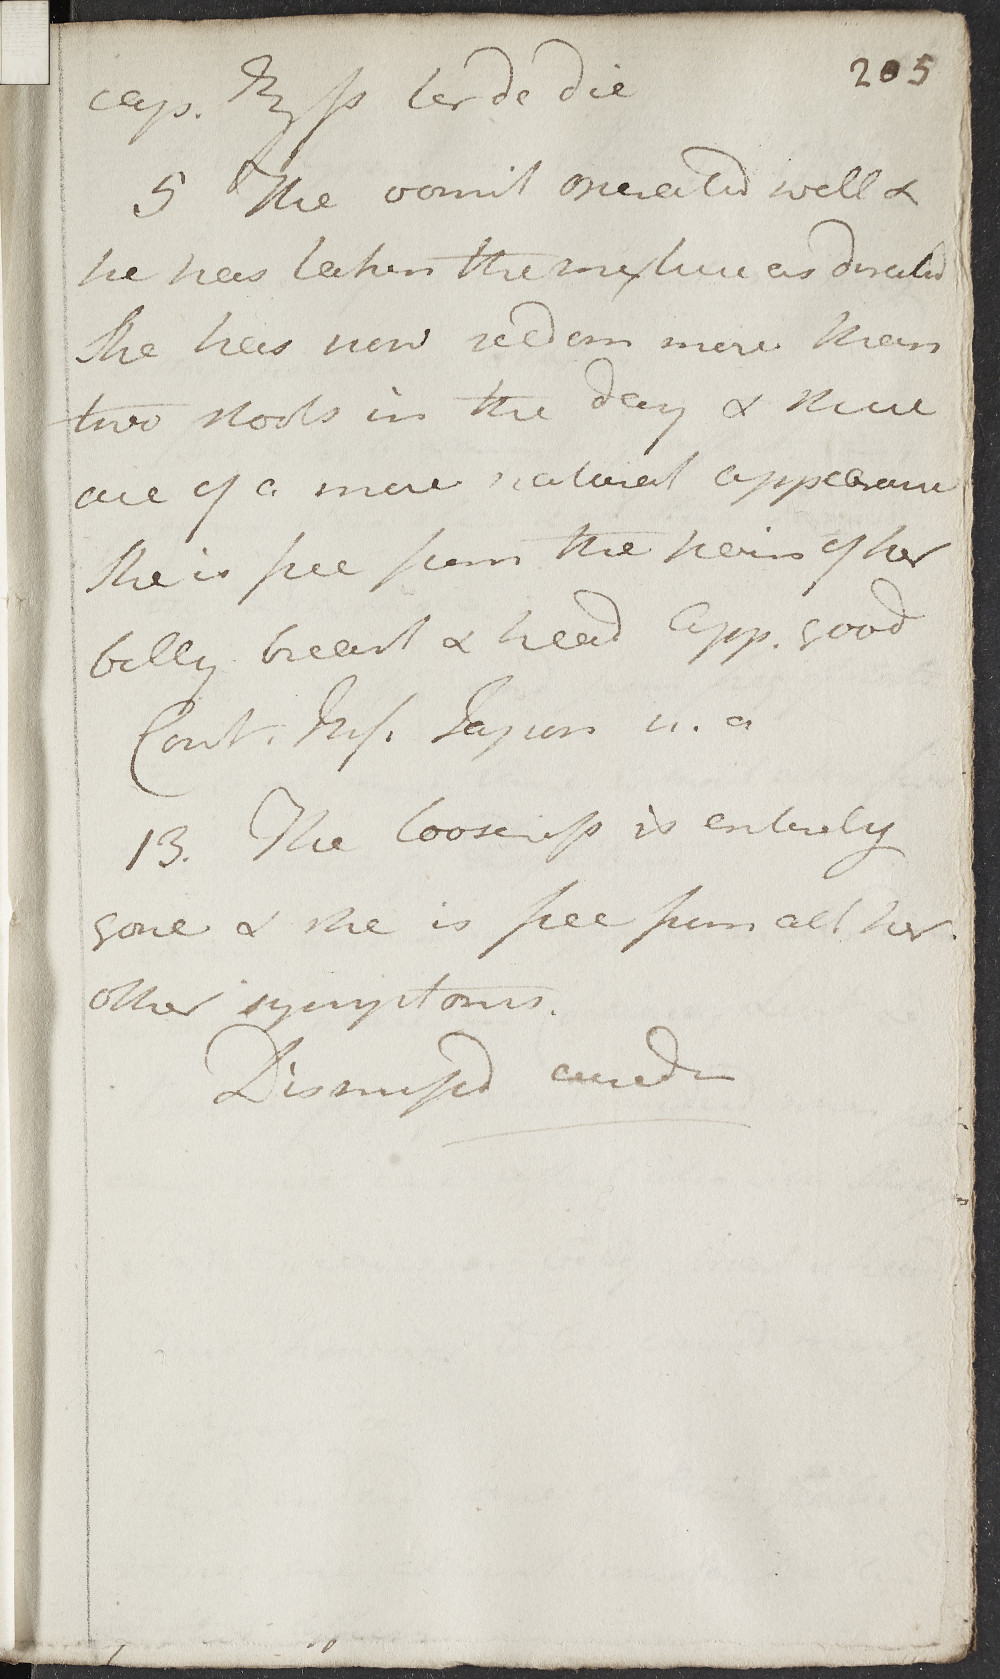 205
cap. ℥ſs ter de die
5 The vomit operated well &
he has taken the mixture as directed
She has now seldom more than
two stools in the day & these
are of a more natural appearance
She is free from the pains of her
belly breast & head App. good
Cont. Japon u. a
13. The looseness is entirely
gone & she is free from all her
other symptoms.
Dismissed cured